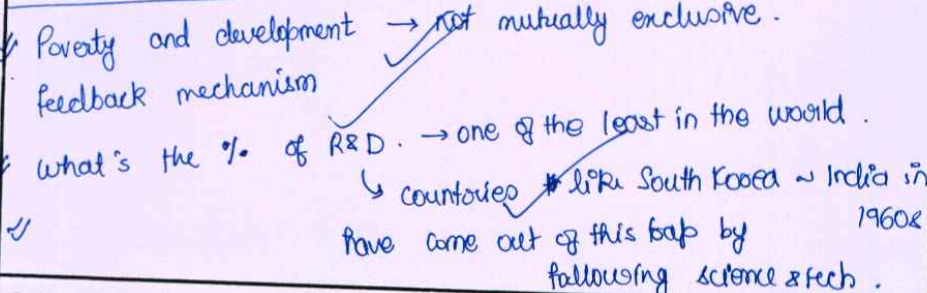 Poverty and development → not mutually exclusive.
feedback mechanism
what's the % of R&D. → one of the least in the world.
↳ countries like South Korea ~ India in 1960s
have come out of this trap by
following science & tech.